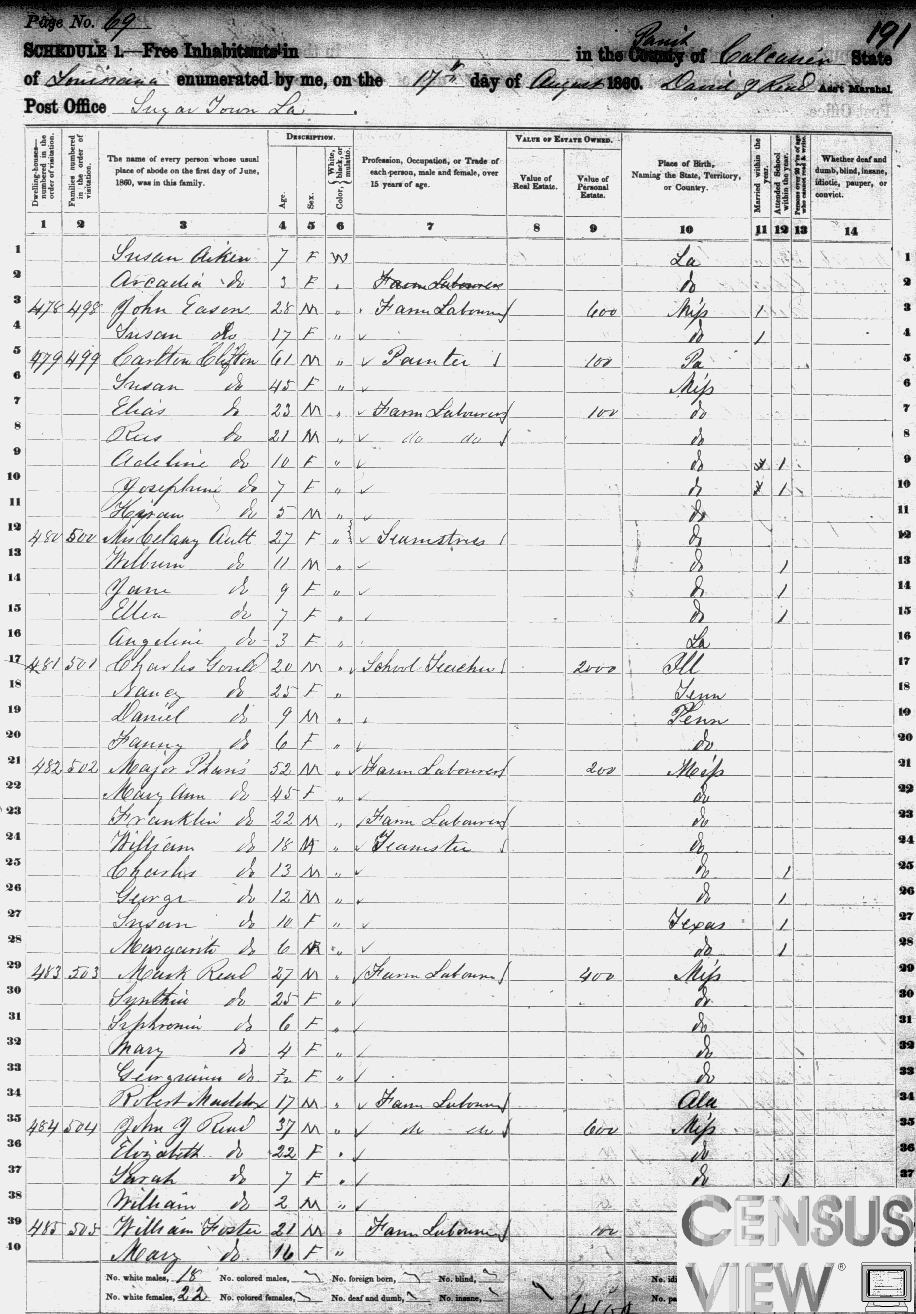 Page No. 69
191
SCHEDULE 1.—Free Inhabitants in in the County of Parish Calcasieu State
of Louisiana enumerated by me, on the 17th day of August 1860. David J Read Ass't Marshal
Post Office Sugar Town La.
Dwelling-houses—numbered in the order of visitation.
Families numbered in the order of visitation.
The name of every person whose usual place of abode on the first day of June, 1860, was in this family.
DESCRIPTION.
Age.
Sex.
Color, White, black, or mulatto.
Profession, Occupation, or Trade of each person, male and female, over 15 years of age.
VALUE OF ESTATE OWNED.
Value of Real Estate.
Value of Personal Estate.
Place of Birth, Naming the State, Territory, or Country.
Married within the year.
Attended School within the year.
Persons over 20 y'rs of age who cannot read & write.
Whether deaf and dumb, blind, insane, idiotic, pauper, or convict.
1 2 3 4 5 6 7 8 9 10 11 12 13 14
1 Susan Aiken 7 F W La 1
2 Arcadia do 3 F " Farm Labourer do 2
3 478 498 John Eason 28 M " Farm Labourer 600 Miss 1 3
4 Susan do 17 F " do 1 4
5 479 499 Carlton Clifton 61 M " Painter 100 Pa 5
6 Susan do 45 F " Miss 6
7 Elias do 23 M " Farm Labourer 100 do 7
8 Rus do 21 M " do do do 8
9 Adeline do 10 F " do 1 9
10 Josephine do 7 F " do 1 10
11 Hiram do 5 M " do 11
12 480 500 Ault 27 F " Seamstress do 12
13 Wilburn do 11 M " do 1 13
14 Jane do 9 F " do 1 14
15 Ellen do 7 F " do 1 15
16 Angeline do 3 F " La 16
17 481 501 Charles Gould 20 M " School Teacher 2000 Ill 17
18 Nancy do 25 F " Tenn 18
19 Daniel do 9 M " Penn 19
20 Fanny do 6 F " do 20
21 482 502 Major Pharis 52 M " Farm Labourer 200 Miss 21
22 Mary Ann do 45 F " do 22
23 Franklin do 22 M " Farm Labourer do 23
24 William do 18 M " Teamster do 24
25 Charles do 13 M " do 1 25
26 George do 12 M " do 1 26
27 Susan do 10 F " Texas 1 27
28 Margarite do 6 F " do 1 28
29 483 503 Mark Read 27 M " Farm Labourer 400 Miss 29
30 Synthia do 25 F " do 30
31 Sephronia do 6 F " do 31
32 Mary do 4 F " do 32
33 Georgiana do F " do 33
34 Robert Maddox 17 M " Farm Labourer Ala 34
35 484 504 John J Read 37 M " do do 600 Miss 35
36 Elizabeth do 22 F " do 36
37 Sarah do 7 F " do 1 37
38 William do 2 M " do
39 485 505 William Foster 21 M " Farm Labourer 100
40 Mary do 16 F "
No. white males, 18 No. colored males, No. foreign born, No. blind,
No. white females, 22 No. colored females, No. deaf and dumb, No. insane,
CENSUS
VIEW®